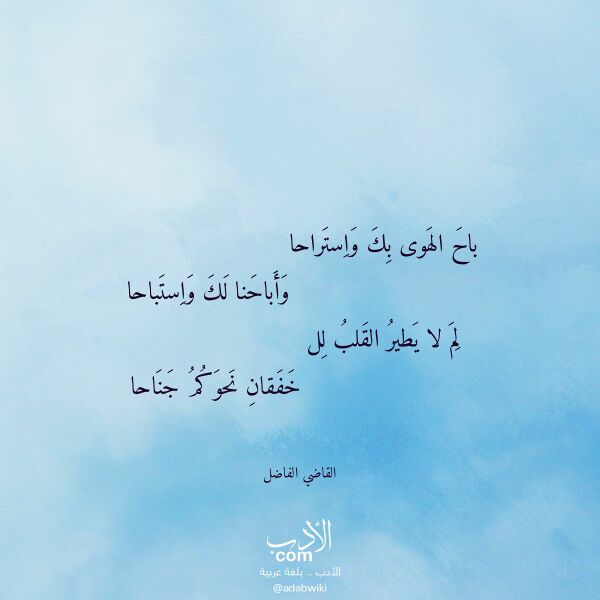 باحَ الهَوى بِكَ وَاِستَراحا
وَأَباحَنا لَكَ وَاِستَباحا
لِمَ لا يَطيرُ القَلبُ لِل
خَفَقانِ نَحوَكُمُ جَنَاحا
القاضي الفاضل
الأدب
com
الأدب .. بلغة عربية
@adabwiki